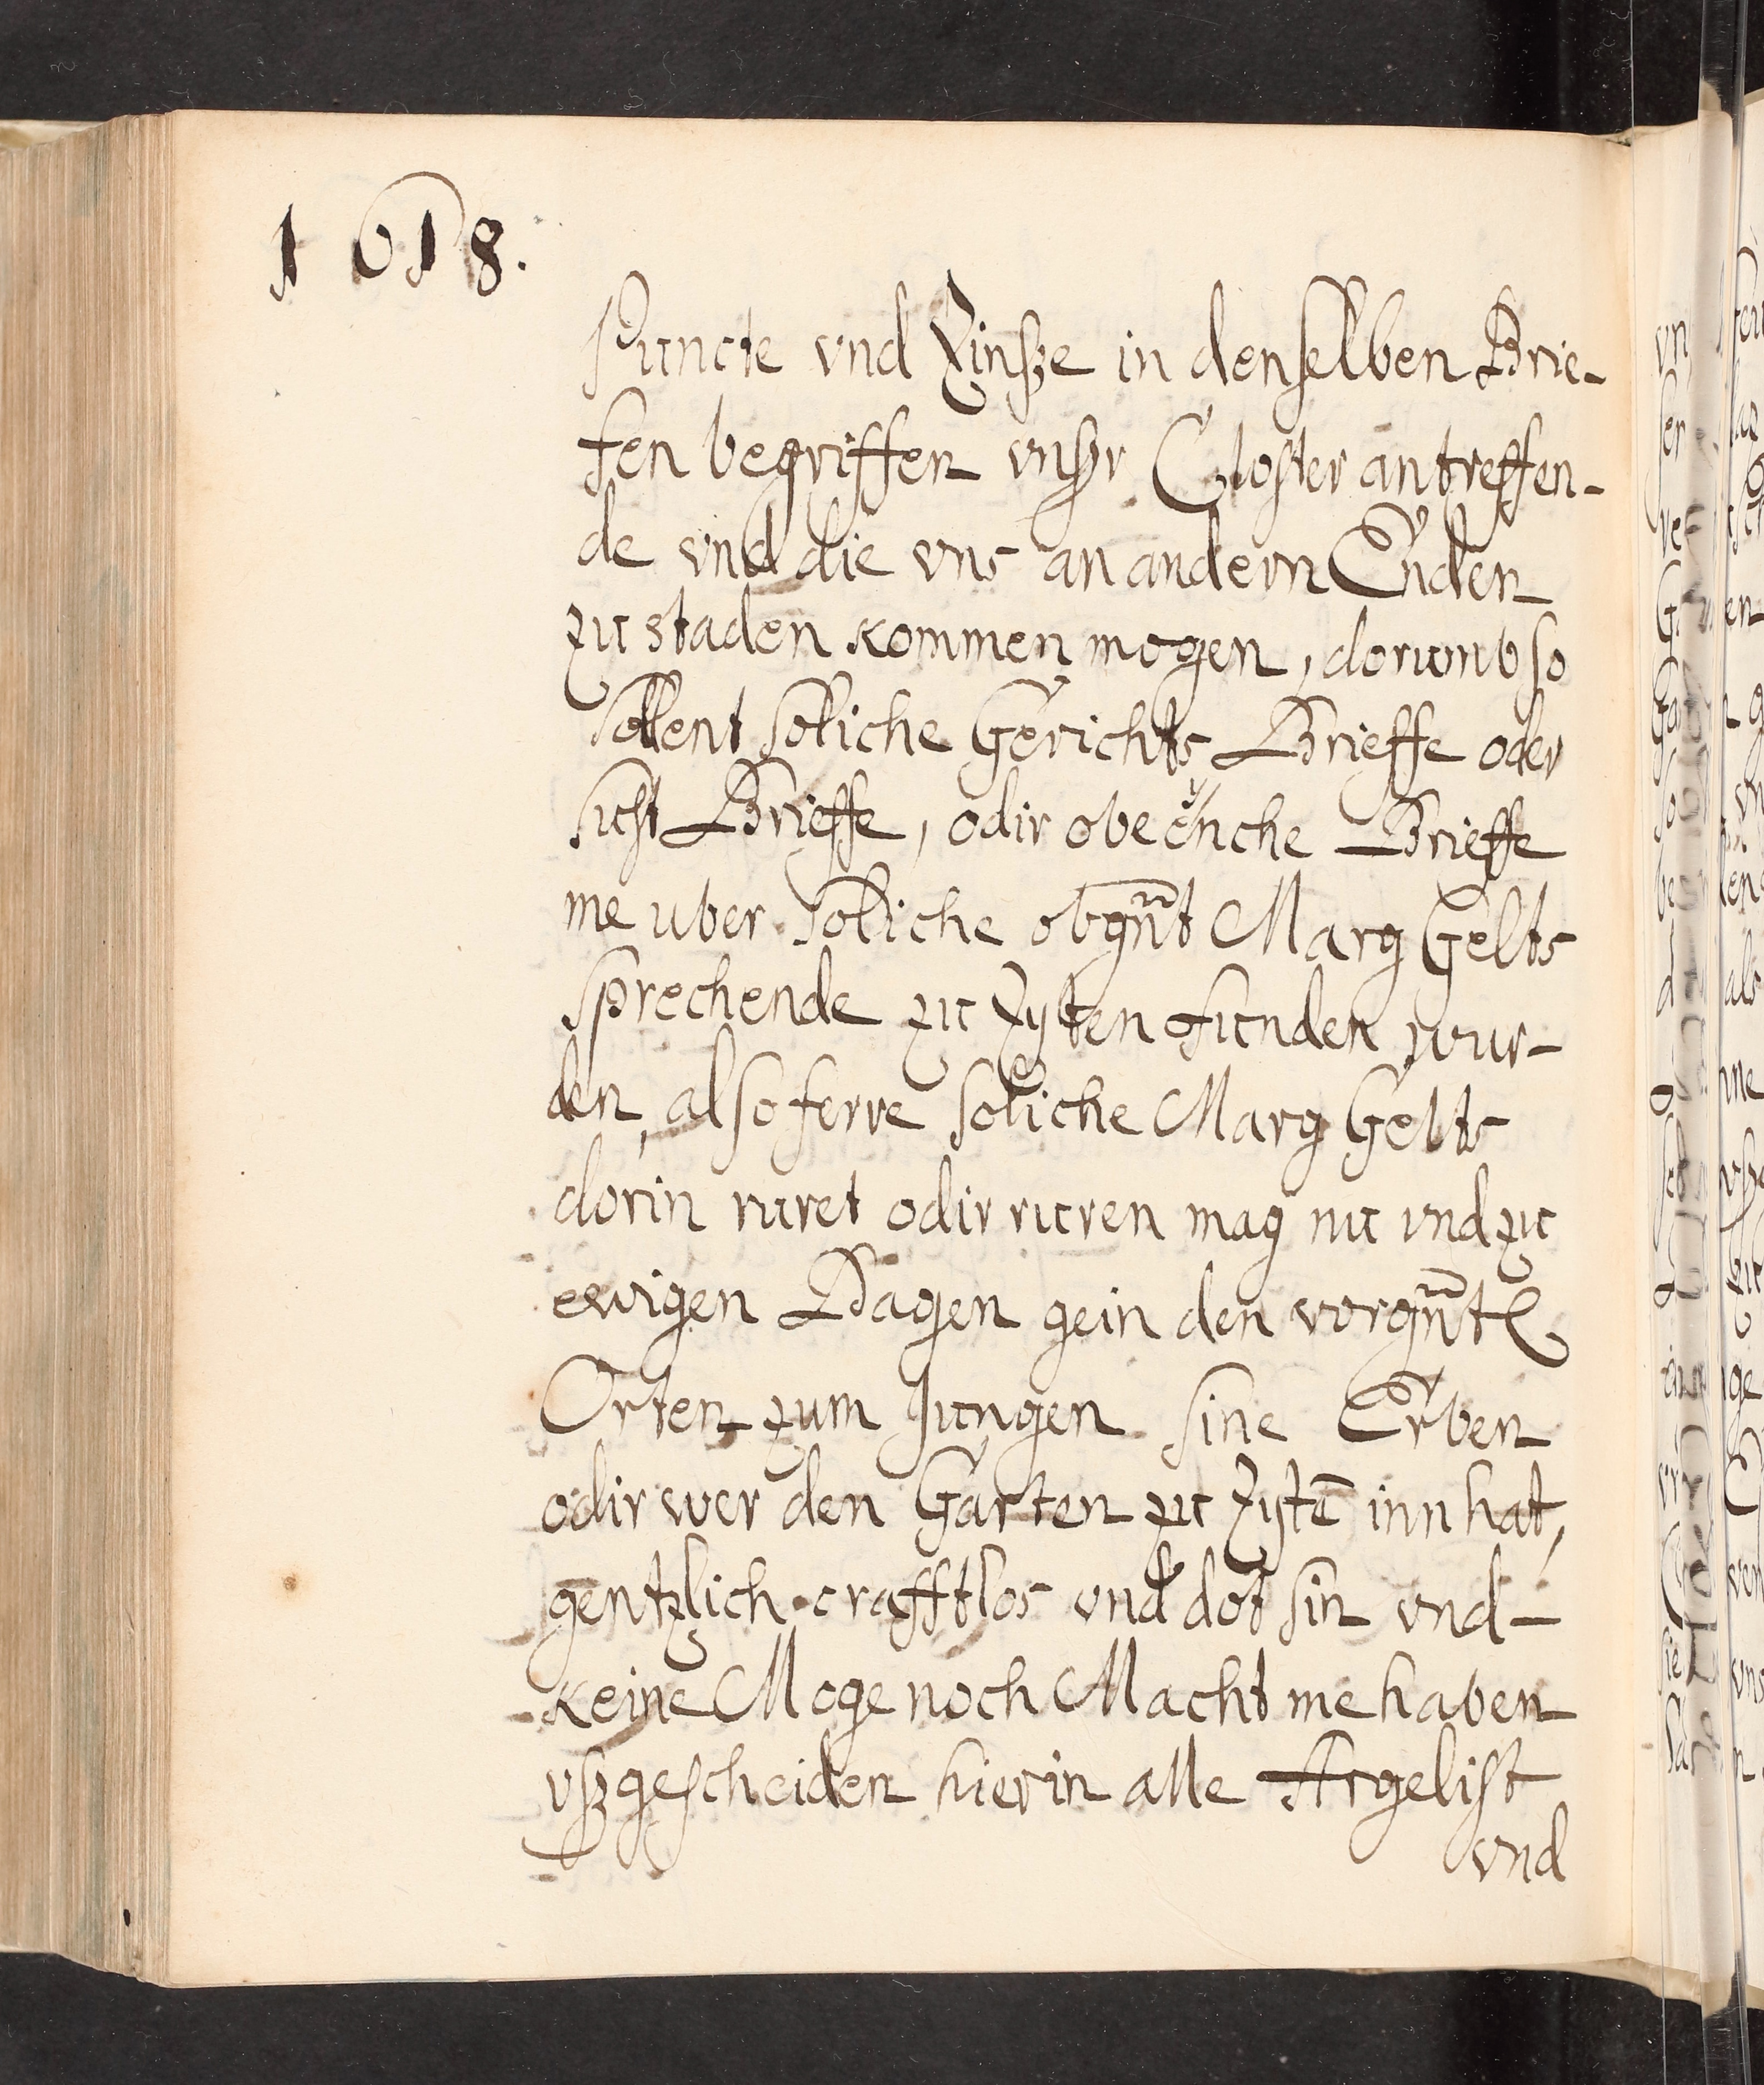 1618.
Puncte vnd Zinsze in denselben Brie-
fen begriffen vnsser Closter antreffen-
de vnd die vns an andern Enden
zu staden kommen mogen, dorumb so
sollent soliche Gerichts Brieffe oder
sust Brieffe, odir obe Brieffe
me uber soliche obgn̄t Marg Gelts
sprechende zu Zyten funden wur-
den, also ferre soliche Marg Gelts
dorin ruret odir ruren mag nu vnd zu
ewigen Dagen gein den vorgn̄t
Orten zum Jungen sine Erben
odir wer den Garten zu Zytē innhat,
gentzlich crafftlos vnd dot sin vnd
keine Moge noch Macht me haben
vszgescheiden hierin alle Argelist
vnd